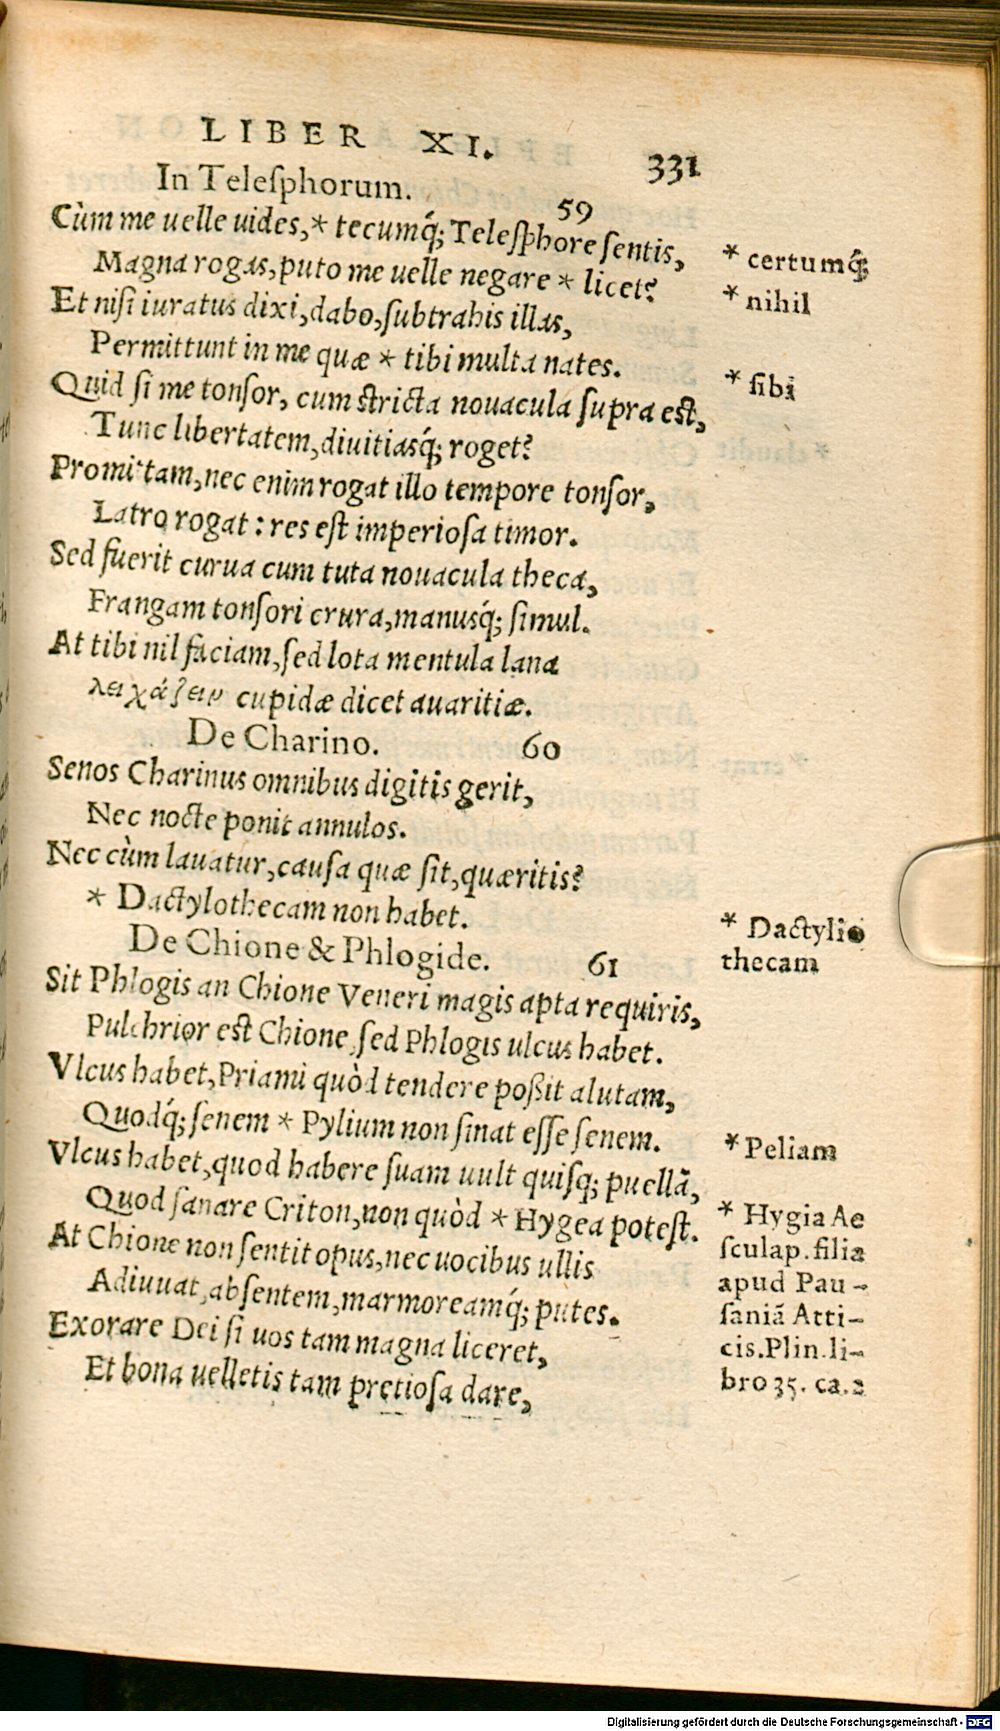 LIBER XI. 331
In Teleſphorum. 59
Cùm me uelle uides,* tecumq́; Teleſphore ſentis, * certumq́;
Magna rogas, puto me uelle negare * licet? * nihil
Et niſi iuratus dixi, dabo, ſubtrahis illas,
Permittunt in me quæ * tibi multa nates. * ſibi
Quid ſi me tonſor, cum ſtricta nouacula ſupra eſt,
Tunc libertatem, diuitiasq́; roget?
Promittam, nec enim rogat illo tempore tonſor,
Latro rogat: res eſt imperioſa timor.
Sed fuerit curua cum tuta nouacula theca,
Frangam tonſori crura, manusq́; ſimul.
At tibi nil faciam, ſed lota mentula lana
λειχάζειν cupidæ dicet auaritiæ.
De Charino. 60
Senos Charinus omnibus digitis gerit,
Nec nocte ponit annulos.
Nec cùm lauatur, cauſa quæ ſit, quæritis?
* Dactylothecam non habet. * Dactylio
thecam
De Chione & Phlogide. 61
Sit Phlogis an Chione Veneri magis apta requiris,
Pulchrior eſt Chione, ſed Phlogis ulcus habet.
Vlcus habet, Priami quòd tendere poßit alutam,
Quodq́; ſenem * Pylium non ſinat eſſe ſenem. * Peliam
Vlcus habet, quod habere ſuam uult quiſq; puellã,
Quod ſanare Criton, non quòd * Hygea poteſt. * Hygia Ae
ſculap. filia
apud Pau-
ſaniã Atti-
cis. Plin. li-
bro 35. ca. 2
At Chione non ſentit opus, nec uocibus ullis
Adiuuat, abſentem, marmoreamq́; putes.
Exorare Dei ſi uos tam magna liceret,
Et bona uelletis tam pretioſa dare,
Digitalisierung gefördert durch die Deutsche Forschungsgemeinschaft - DFG